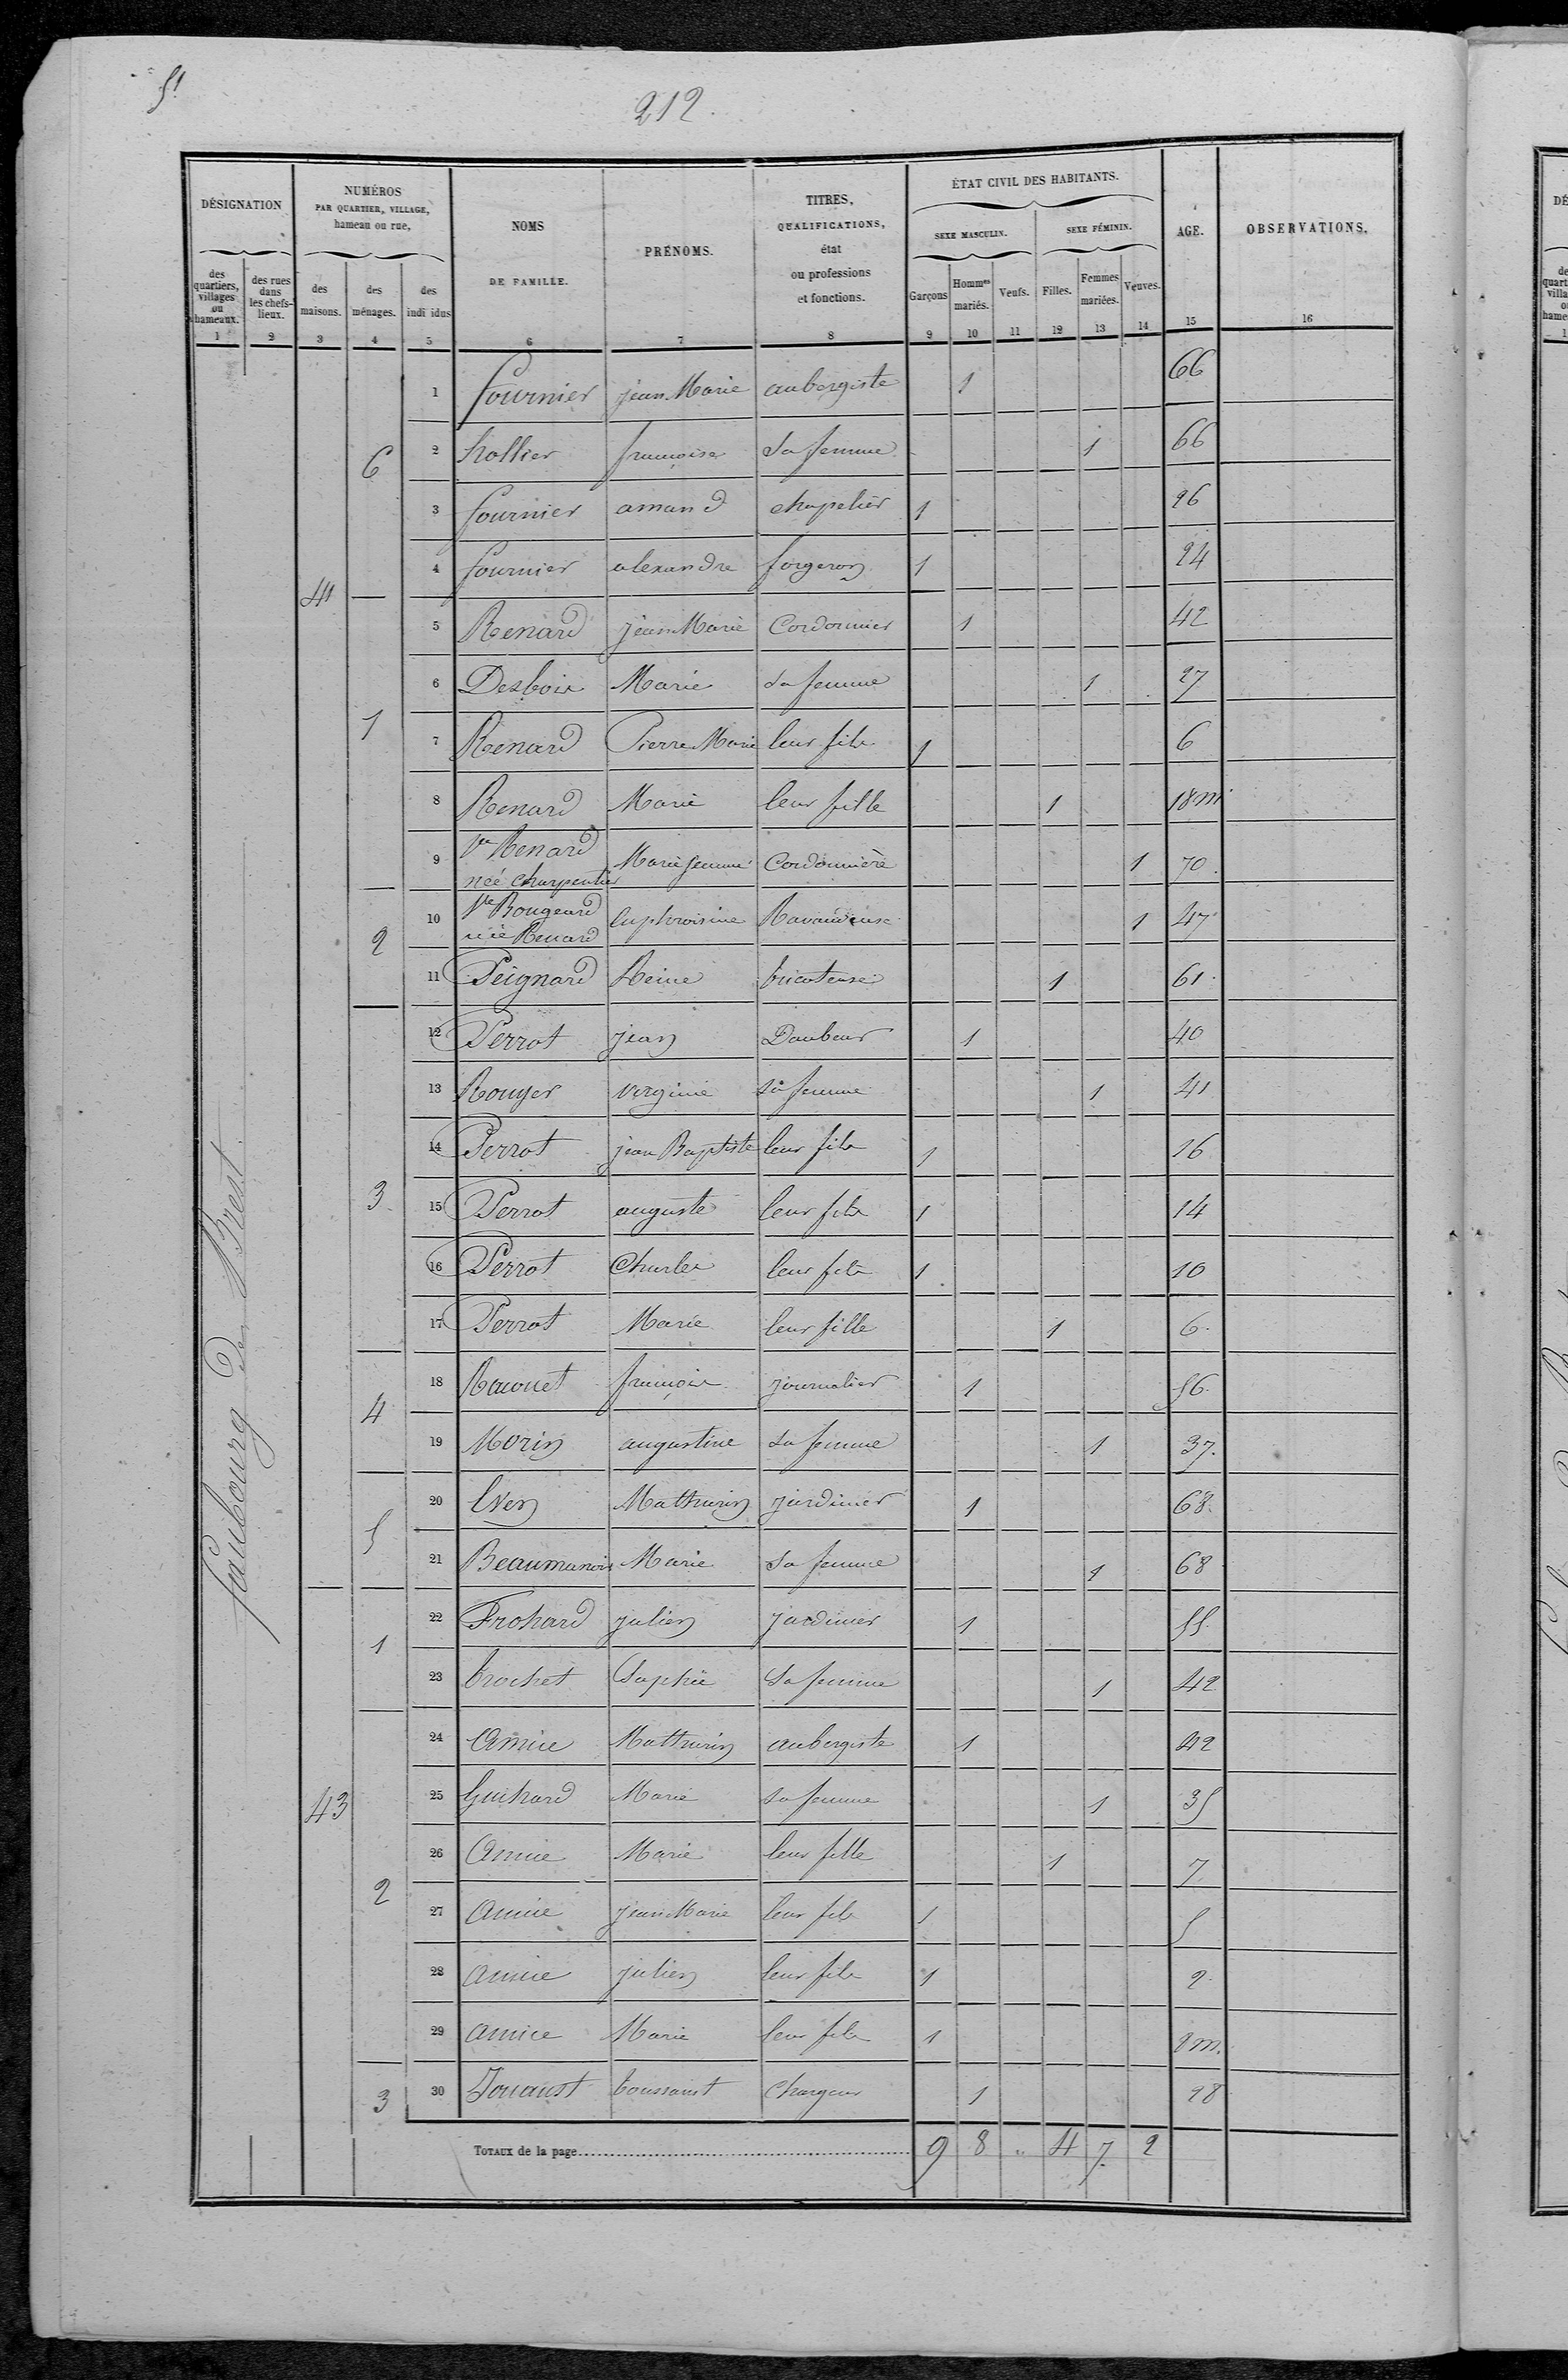 51
212.
DÉSIGNATION
NUMÉROS PAR QUARTIER, VILLAGE, hameau ou rue,
NOMS DE FAMILLE.
PRÉNOMS.
TITRES, QUALIFICATIONS, état ou professions et fonctions.
ÉTAT CIVIL DES HABITANTS.
SEXE MASCULIN.
SEXE FÉMININ.
AGE.
OBSERVATIONS.
des quartiers, villages ou hameaux.
des rues dans les chefs-lieux.
des maisons.
des ménages.
des indi idus
Garçons
Hommes mariés.
Veufs.
Filles.
Femmes mariées.
Veuves.
1 2 3 4 5 6 7 8 9 10 11 12 13 14 15 16
faubourg de Brest
1 fournier jean Marie aubergiste 1 66
6 2 hollier françoise Sa femme 1 66
3 fournier amand chapelier 1 26
4 fournier alexandre forgeron 1 24
41
5 Renard jean Marie Cordonnier 1 42
6 Desbois Marie Sa femme 1 27
1 7 Renard Pierre Marie leur fils 1 6
8 Renard Marie leur fille 1 18m
9 Ve Renard née charpentier Marie jeanne Cordonnière 1 70.
2 10 Ve Bougeard née Renard Euphroisine Ravaudeuse 1 47
11 Peignard Reine tricoteuse 1 61
12 Perrot jean Daubeur 1 40
13 Rouyer virginie Sa femme 1 41
14 Perrot jean Baptiste leur fils 1 16
3. 15 Perrot auguste leur fils 1 14
16 Perrot Charles leur fils 1 10
17 Perrot Marie leur fille 1 6.
18 Racouet françois journalier 1 56.
4 19 Morin augustine Sa femme 1 37.
20 Even Mathurin jardinier 1 68.
5 21 Beaumanoir Marie Sa femme 1 68
22 Frohard julien jardinier 1 55
1 23 trochet Sophie Sa femme 1 42
24 Amice Mathurin aubergiste 1 42
43 25 Guihard Marie Sa femme 1 35
26 Amice Marie leur fille 1 7
2 27 Amice jean Marie leur fils 1 5
28 amice julien leur fils 1 2.
29 amice Marie leur fils 1 8m.
3 30 Jouaust toussaint Chargeur 1 28
TOTAUX de la page 9 8 " 4 7. 2